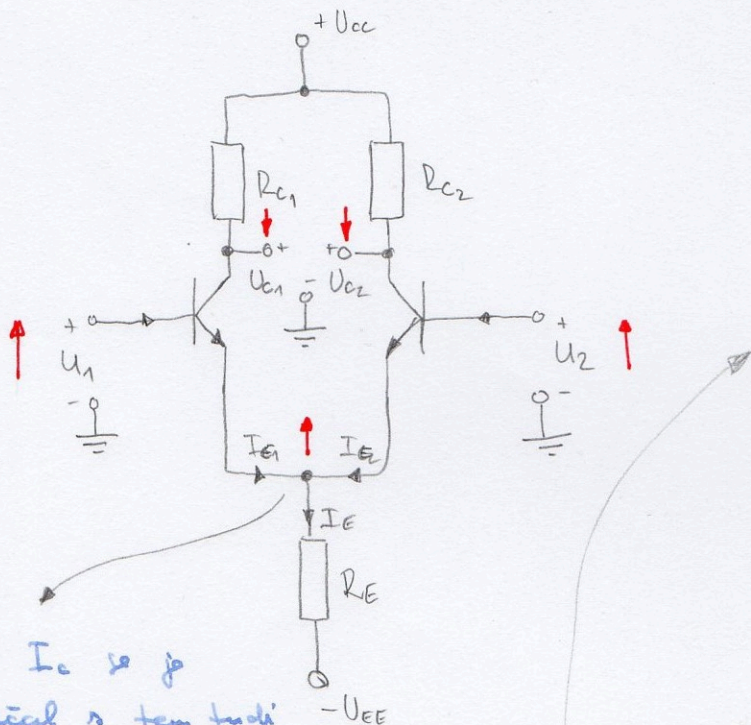 +Ucc
RC1
RC2
+
+
UC1
-
UC2
+
U1
-
+
U2
-
IE1
IE2
IE
RE
-UEE
se je
s tem tudi